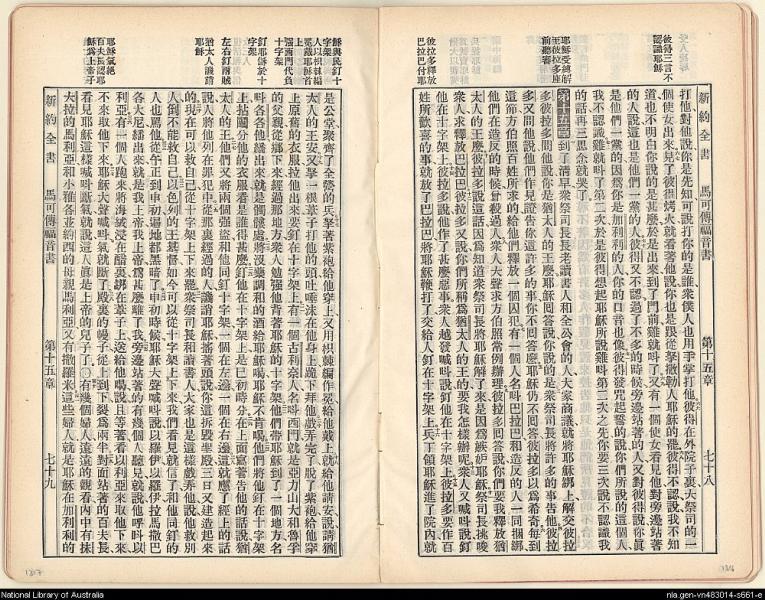 彼得三言不
認識耶穌
耶穌受縛解
至彼拉多
前聽審
彼拉多釋放
巴拉巴付
新約全書 馬可傳福音書 第十五章 七十八
打他對他說你是先知可說打你的是誰衆僕人也用手掌打他彼得在外院子裏大祭司的一
個使女出來見了彼得烤火就看着他說你也是跟從拿撒勒人耶穌的罷彼得不認說我不知
道也不明白你說的是甚麼於是出來到了門前雞就呌了又有一個使女看見他對旁邊站著
的人說這也是他們一黨的人彼得又不認過了不多的時候旁邊站著的人又對彼得說你眞
是他們一黨的因爲你是加利利的人你的口音也像彼得發咒起誓的說你們所說的這個人
我不認識雞就呌了第二次於是彼得想起耶穌所說雞呌第二次之先你要三次說不認識我
的話再三思念就哭了
第十五章 到了清早衆祭司長長老讀書人和全公會的人大家商議就將耶穌綁上解交彼拉
多彼拉多問他說你是猶太人的王麼耶穌回答說你說的是衆祭司長將許多的事告他彼拉
多又問他說他們作見證告你這許多的事你不回答麼耶穌仍不回答彼拉多以爲希奇每到
這節方伯照百姓所求的給他們釋放一個囚犯有一個人名呌巴拉巴和造反的人一同捆綁
他們在造反的時候曾殺過人衆人大聲求方伯照常例辦理彼拉多回答說你們要我釋放猶
太人的王麼彼拉多說這話因爲知道衆祭司長將耶穌解了來是因爲嫉妒耶穌祭司長挑唆
衆人求釋放巴拉巴彼拉多又說你們所稱爲猶太人的王的要我怎樣辦呢衆人又喊呌說釘
他在十字架上彼拉多說他作了甚麼惡事衆人越發喊呌說釘他在十字架上彼拉多要作百
姓所歡喜的事就放了巴拉巴將耶穌鞭打了交給人釘在十字架上兵丁領耶穌進了院內就
穌與民釘十
字架
人以棘冕
冕戴耶穌首
强西門代負
十字架
釘耶穌於十
字架
左右釘兩賊
猶太人譏誚
耶穌
耶穌氣絕
百夫長認耶
穌爲上帝子
是公堂聚齊了全營的兵拏著紫袍給他穿上又用棘編作冕給他戴上就給他請安說請猶
太人的王安又拏一根葦子打他的頭吐唾沫在他身上跪下拜他戲弄完了脫了紫袍給他穿
上原舊的衣服拉他出來要釘在十字架上有一個古利奈人名呌西門就是亞力山大和魯孚
的父親從鄉下來經過那地方衆人勉强他背著耶穌的十字架他們帶耶穌到了一個地方名
呌各各他繙出來就是髑髏處將沒藥調和的酒給耶穌喝耶穌不肯喝他們將他釘在十字架
上拈鬮分他的衣服看是誰得甚麼釘他在十字架上是巳初時分在上面寫著告他的話說猶
太人的王他們又將兩個强盜和他同釘十字架一個在左邊一個在右邊這就應了經上的話
說人將他列在罪犯中從那裏經過的人譏誚耶穌搖著頭說你這拆毀聖殿三日又建造起來
的現在可以救自己從十字架上下來罷衆祭司長和讀書人大家也是這樣戲弄他說他救別
人倒不能救自己以色列的王基督如今可以從十字架上下來我們看見就信了和他同釘的
人也罵他從午正到申初遍地都黑暗了申初時候耶穌大聲喊呌說以羅伊以羅伊拉馬撒巴
各大尼繙出來就是我上帝我上帝爲甚麼離了我旁邊站著的有幾個人聽見就說他呼呌以
利亞有一個人跑來將海絨浸在醋裏綁在葦子上送給他喝說且等著看以利亞來取他下來
不來取他下來耶穌大聲喊呌氣就斷了殿裏的幔子從上到下裂爲兩半對面站著的百夫長
看見耶穌這樣喊呌斷氣就說這人眞是上帝的兒子了還有幾個婦人遠遠的觀看內中有抹
大拉的馬利亞和小雅各並約西的母親馬利亞又有撒羅米這些婦人就是耶穌在加利利的
新約全書 馬可傳福音書 第十五章 七十九
National Library of Australia
nla.gen-vn483014-s661-e